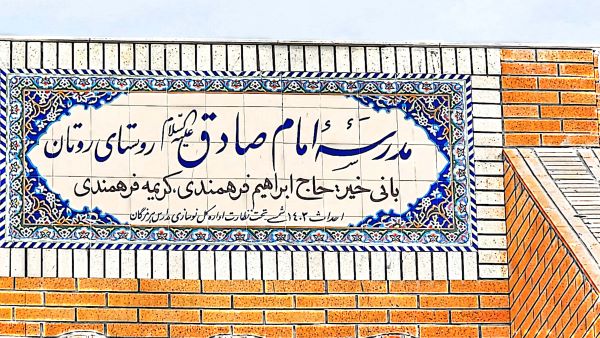 مدرسهٔ امام صادق علیه‌السلام روستای روتان
بانی خیر: حاج ابراهیم فرهمندی، کریمه فرهمندی
احداث ۱۴۰۲ شمسی تحت نظارت اداره کل نوسازی مدارس هرمزگان